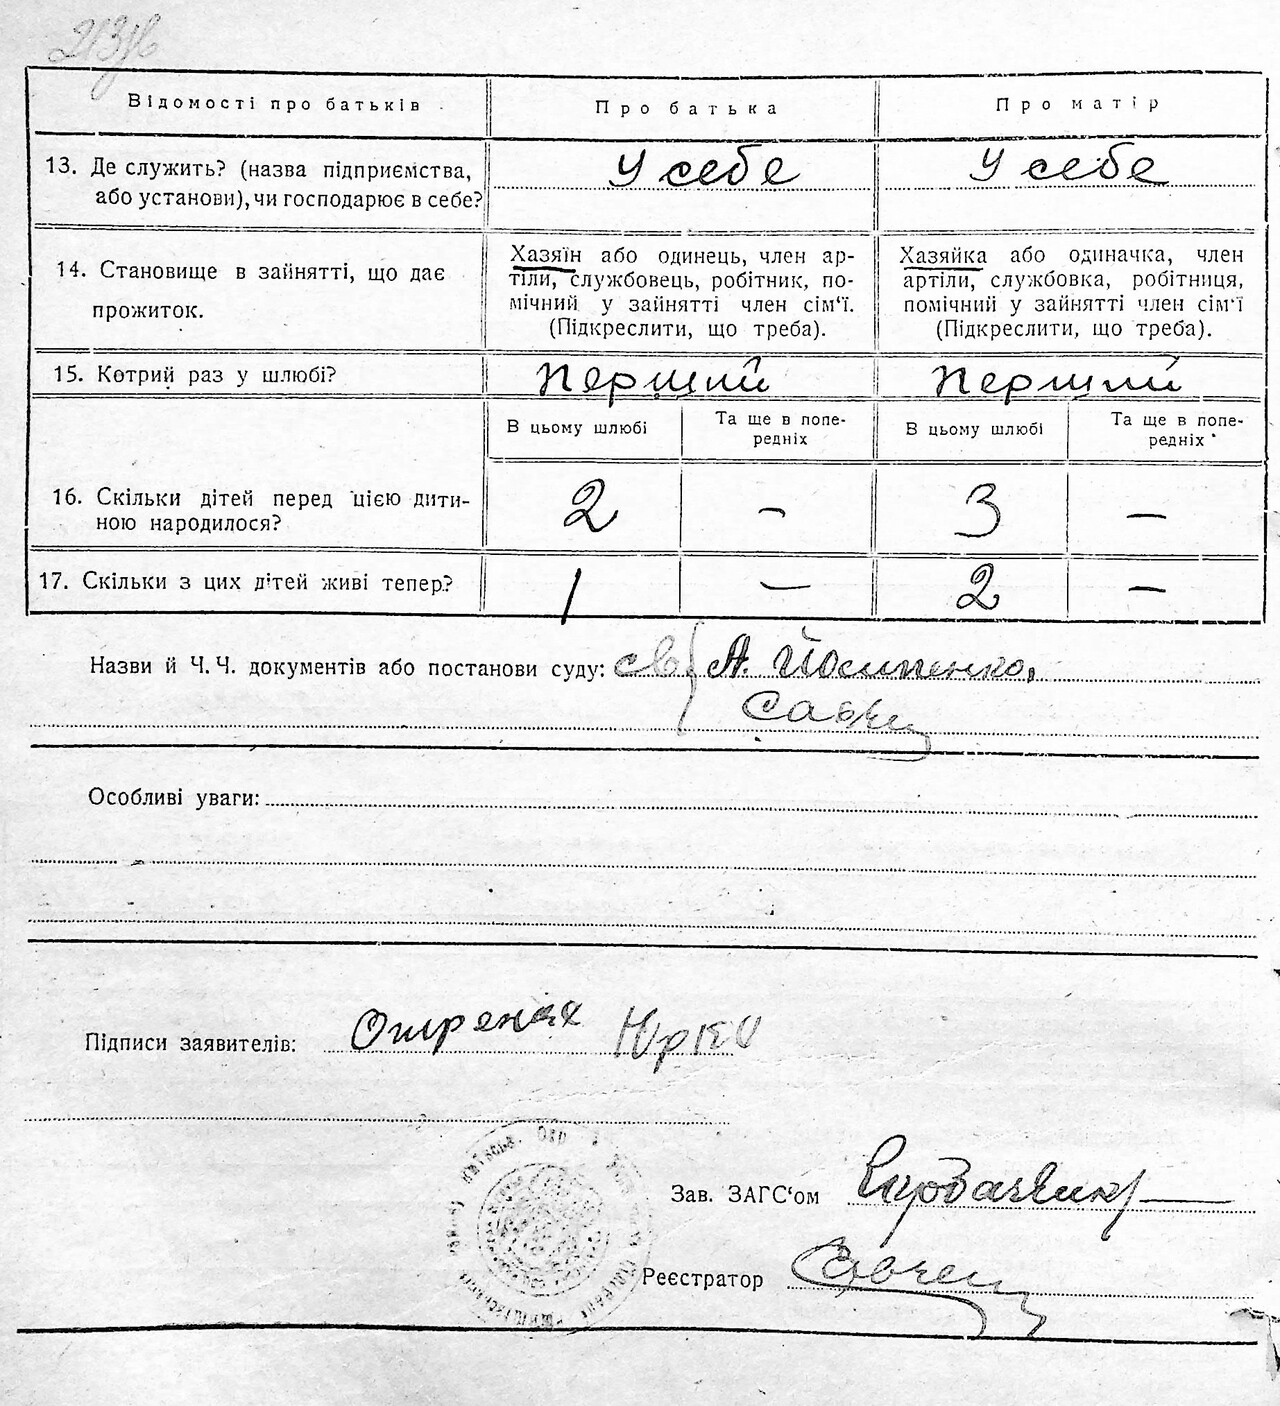 Відомості про батьків
Про батька
Про матір
13. Де служить? (назва підприємства,
або установи), чи господарює в себе?
У себе
У себе
14. Становище в зайнятті, що дає
прожиток.
Хазяїн або одинець, член ар-
тіли, службовець, робітник, по-
мічний у зайнятті член сім‘ї.
(Підкреслити, що треба).
Хазяйка або одиначка, член
артіли, службовка, робітниця,
помічний у зайнятті член сім‘ї
(Підкреслити, що треба).
15. Котрий раз у шлюбі?
Перший
Перший
В цьому шлюбі
Та ще в попе-
редніх
В цьому шлюбі
Та ще в попе-
редніх
16. Скільки дітей перед цією дити-
ною народилося?
2
–
3
–
17. Скільки з цих дітей живі тепер?
1
–
2
–
Назви й Ч. Ч. документів або постанови суду: св. А. Йосипенко,
Особливі уваги:
Підписи заявителів: Юрко
Зав. ЗАГС‘ом
Реєстратор